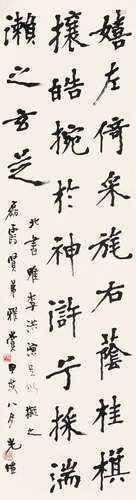 嬉左倚采旄右蔭桂旗
攘皓捥於神滸兮採湍
瀨之玄芝
北書李洪演以擬之
賢弟雅賞甲戌八月